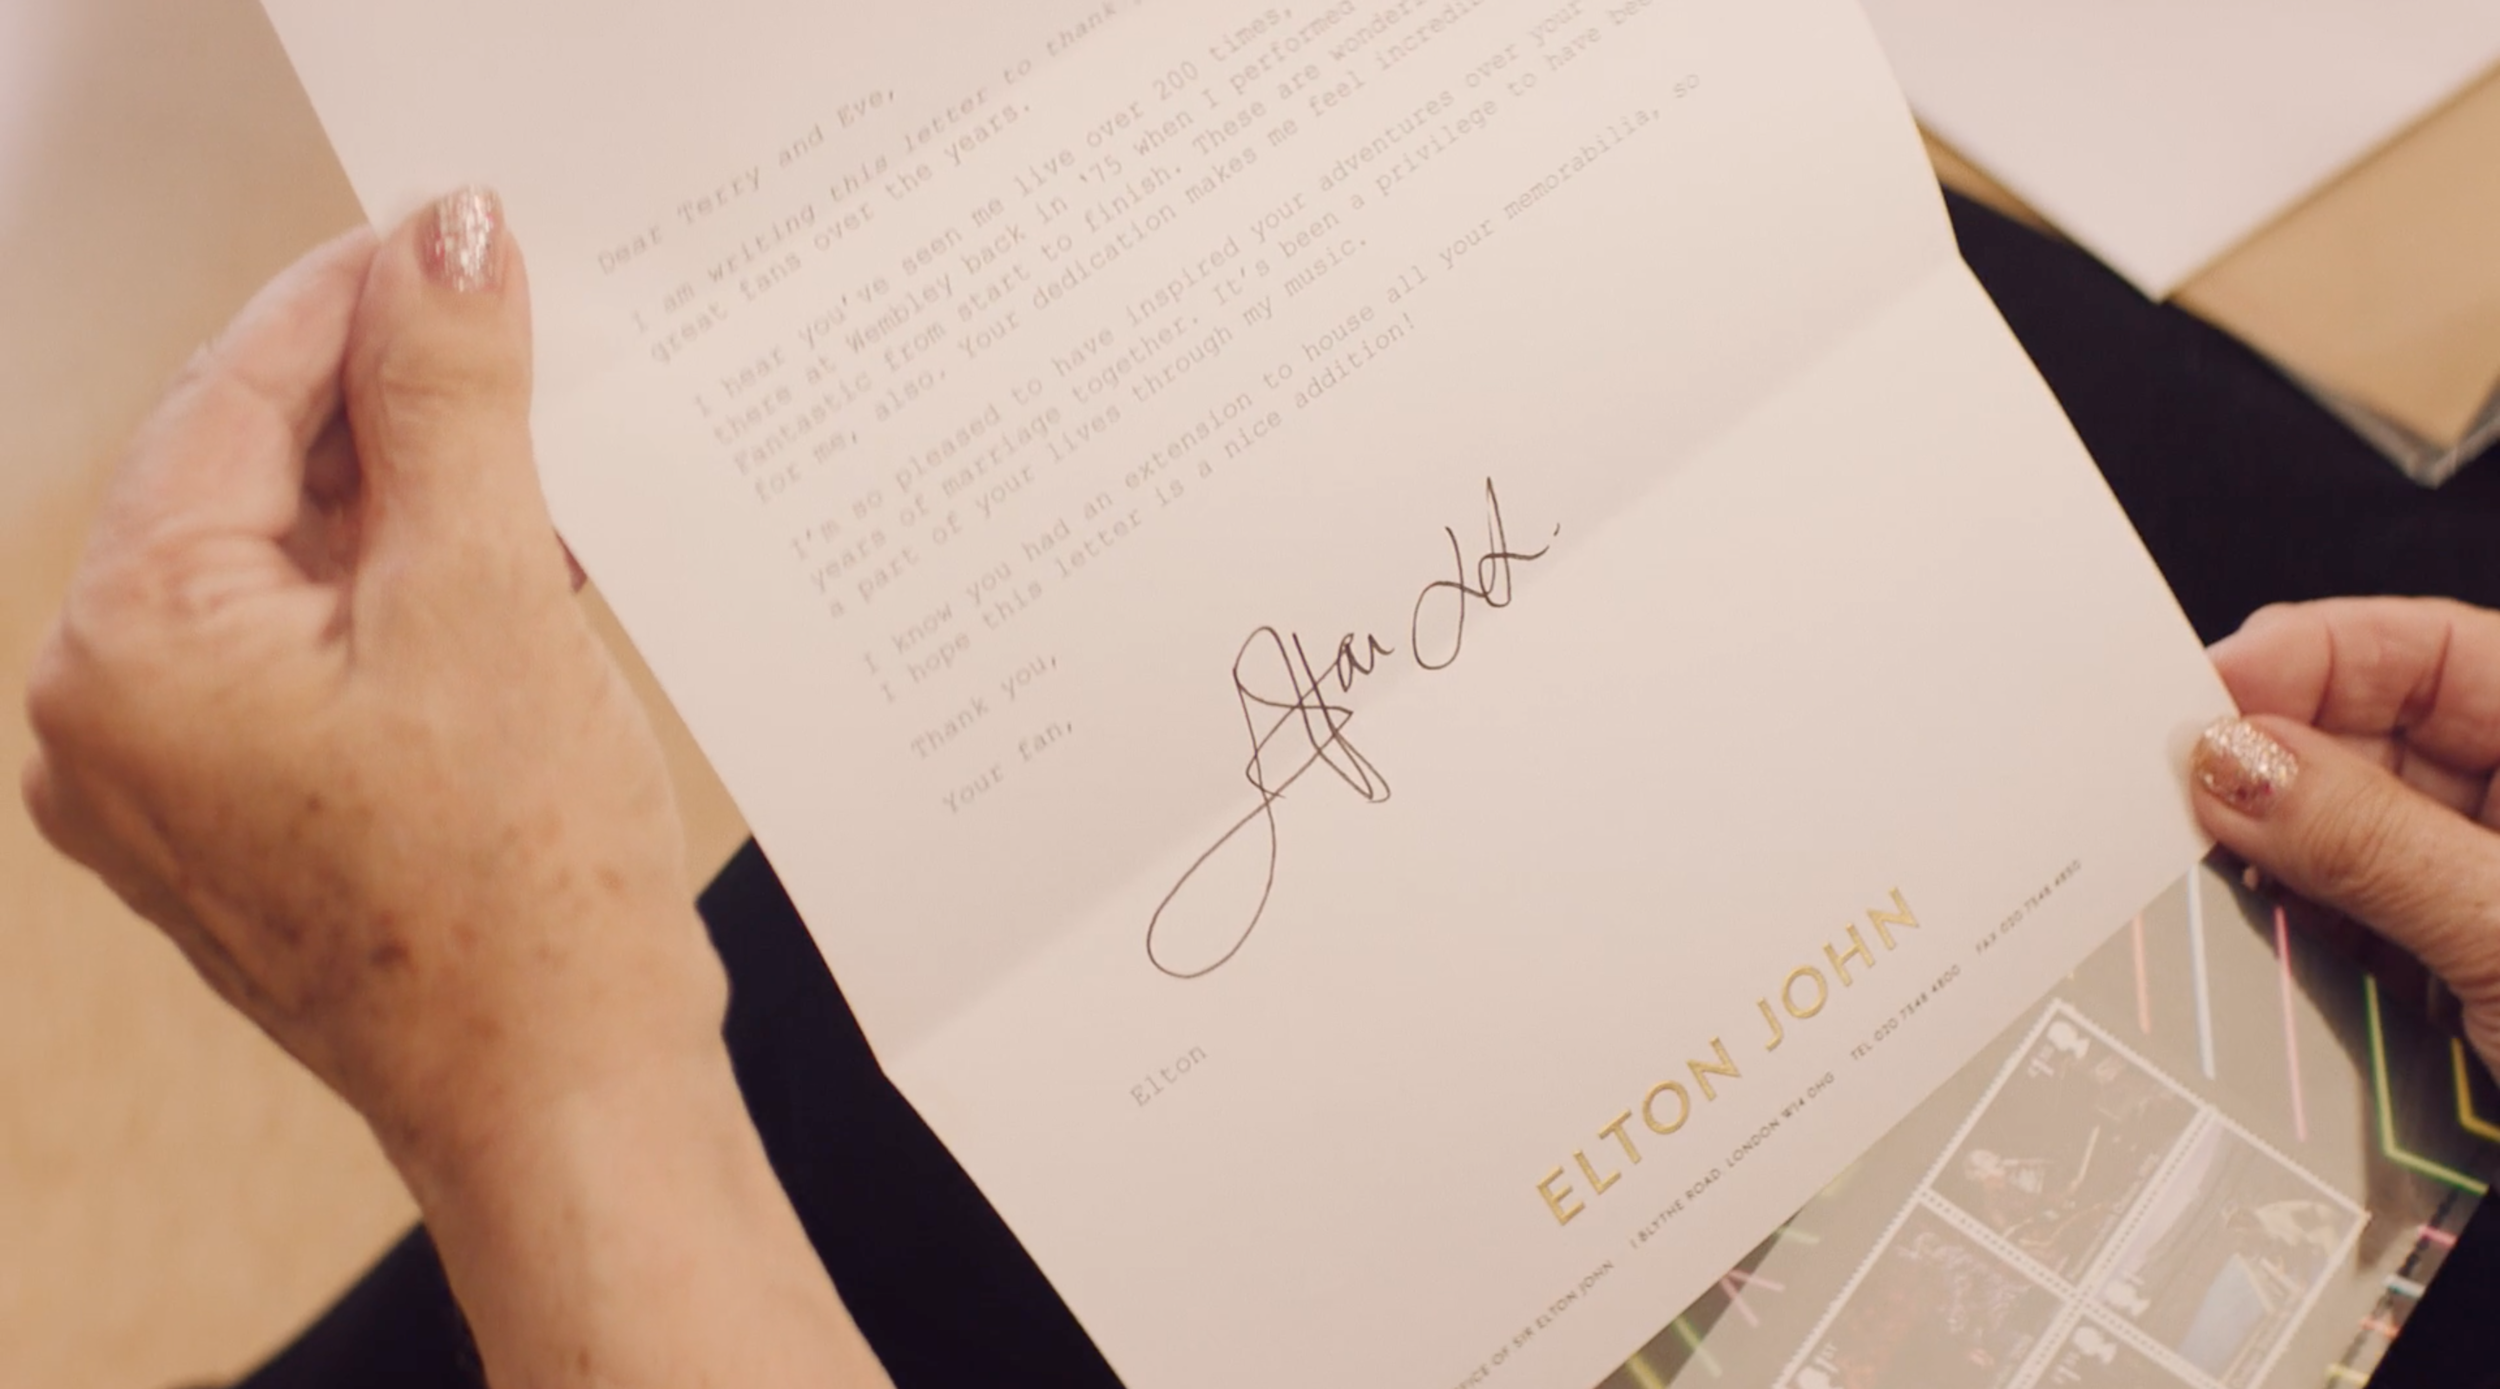 Dear Terry and Eve,
I am writing this letter to thank
great fans over the years.
I hear you've seen me live over 200 times,
there at Wembley back in '75 when I performed
Fantastic from start to finish. These are
for me, also. Your dedication makes me feel
I'm so pleased to have inspired your adventures over your
years of marriage together. It's been a privilege to have
a part of your lives through my music.
I know you had an extension to house all your memorabilia, so
I hope this letter is a nice addition!
Thank you,
Your fan,
Elton
ELTON JOHN
OF SIR ELTON JOHN 1 BLYTHE ROAD, LONDON W14 0HG TEL 020 7348 4800 FAX 020 7348 4850